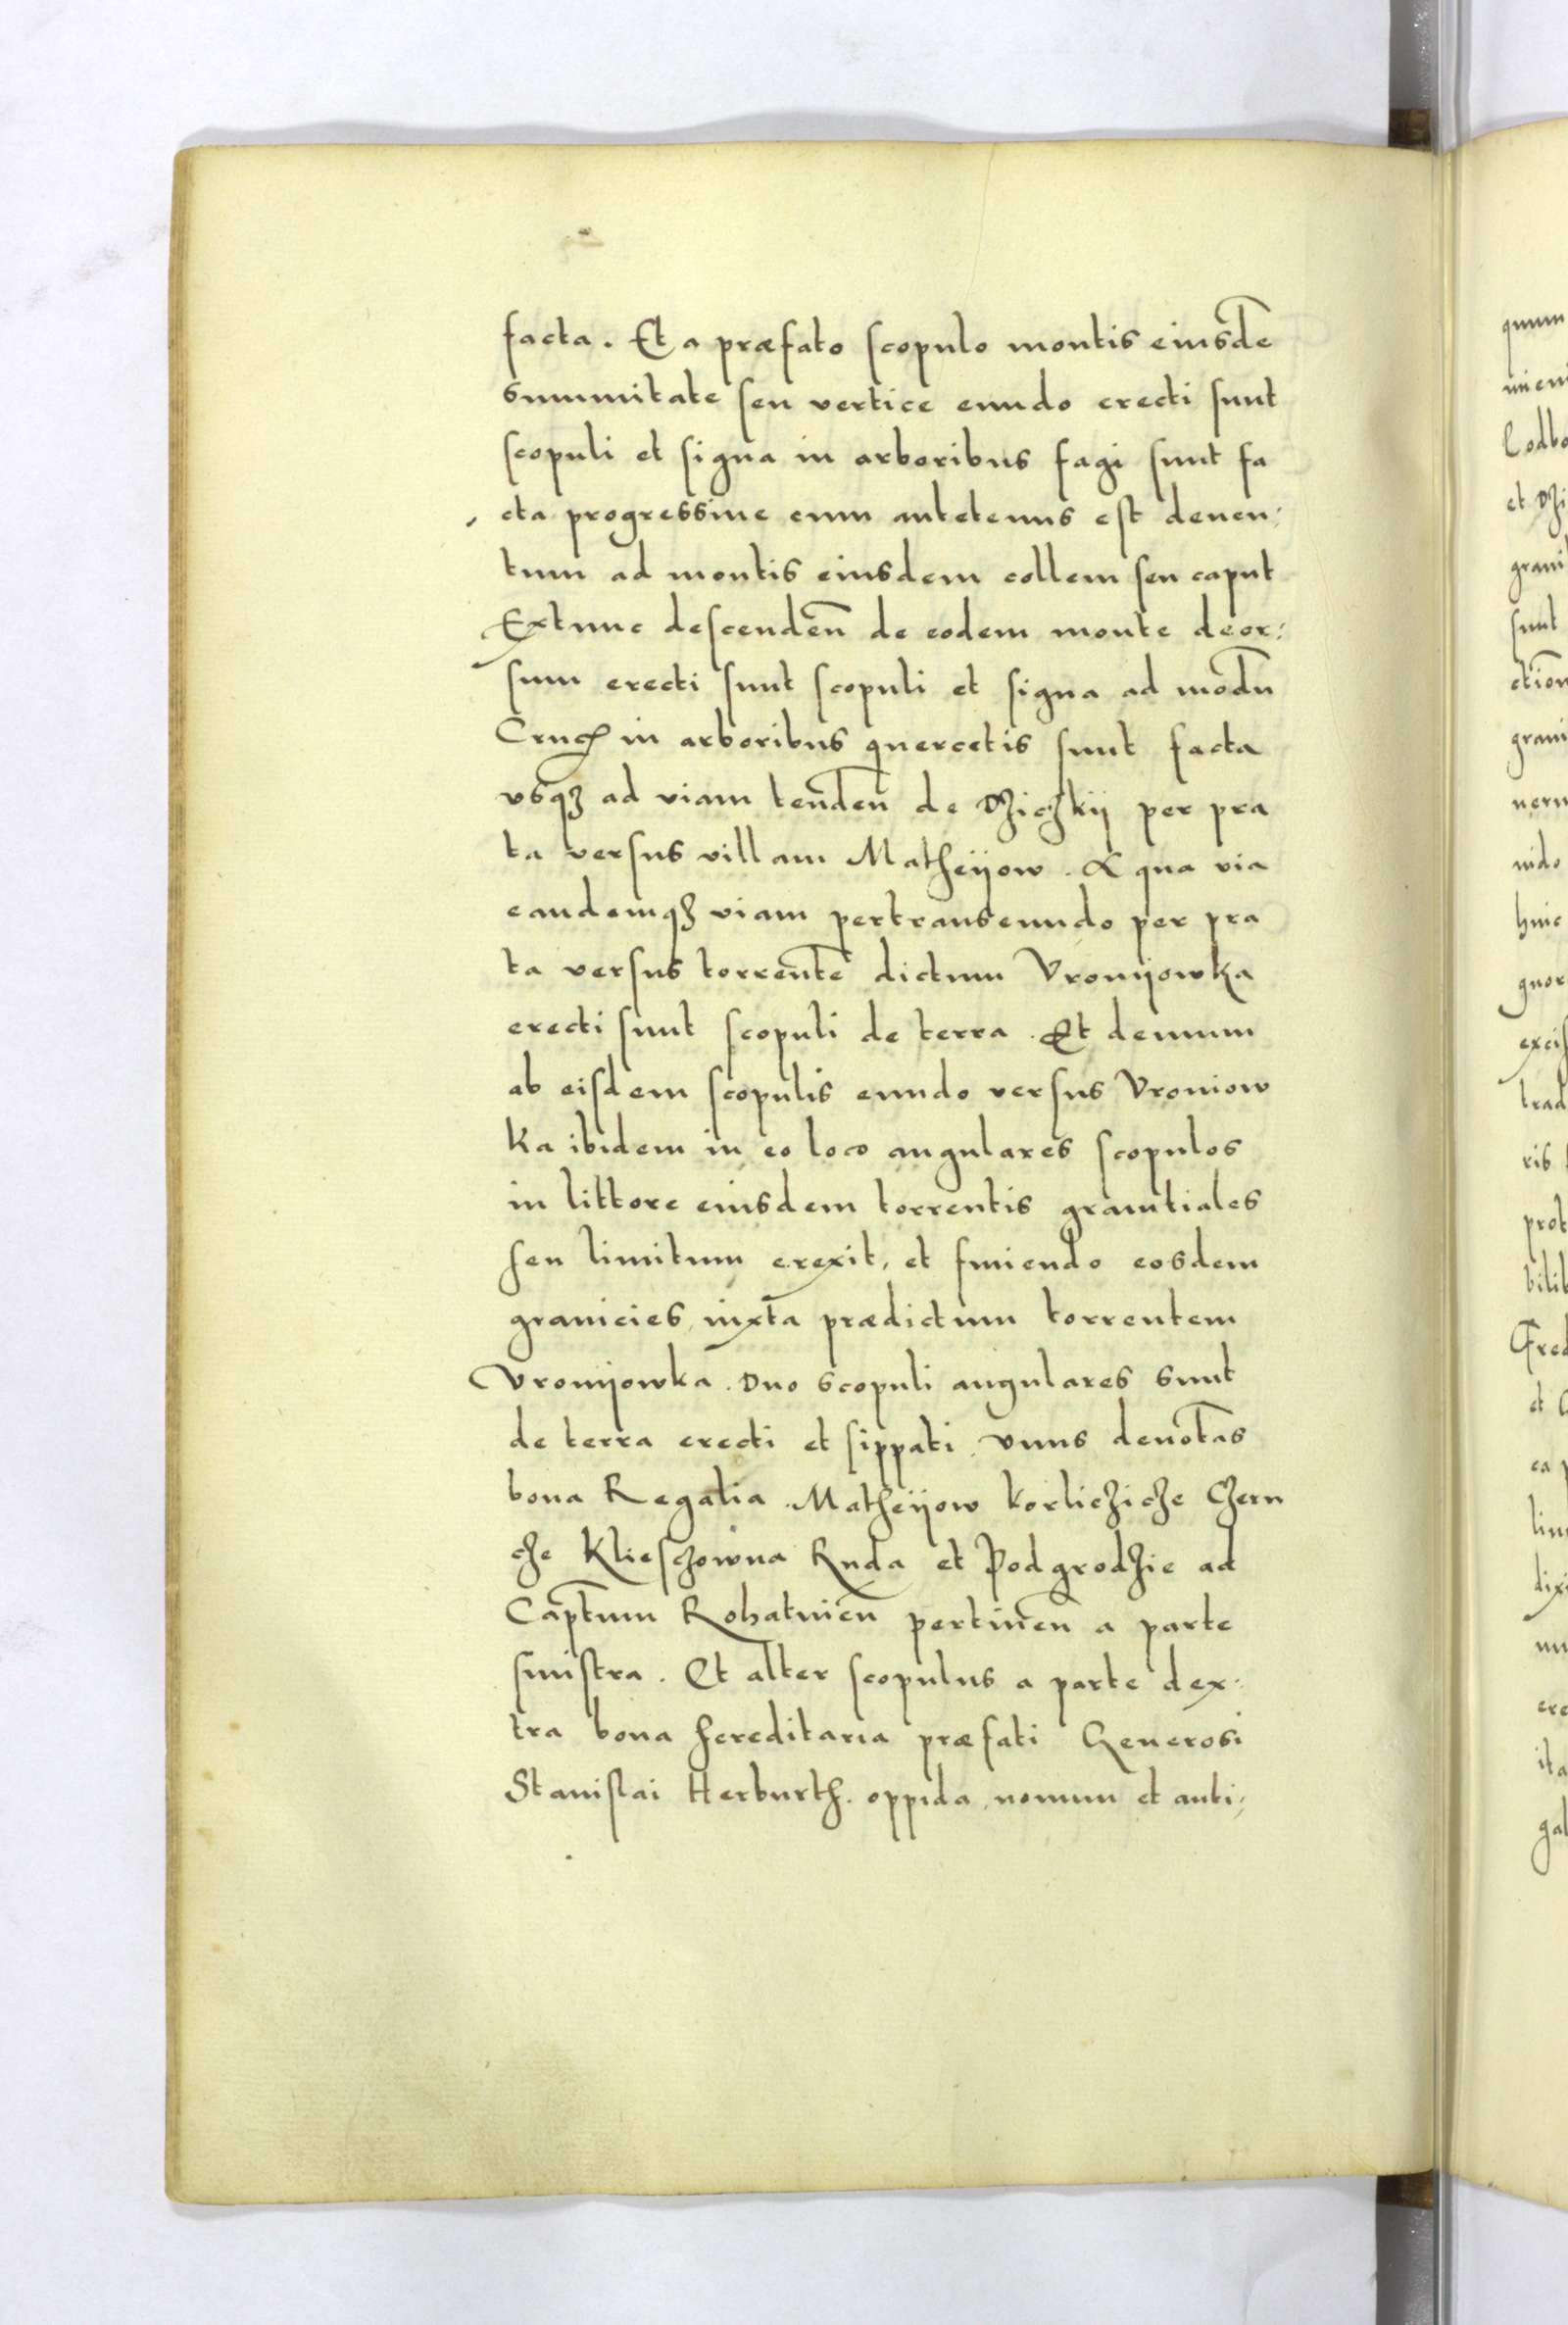 facta. Et a præfato scopulo montis eiusdē
summitate seu vertice eundo erecti sunt
scopuli et signa in arboribus fagi sunt fa
cta progressiue cum antetenus est deuen:
tum ad montis eiusdem collem seu caput
Extunc descendeñ de eodem monte deor:
sum erecti sunt scopuli et signa ad modū
Crucꝭ in arboribus quercetis sunt facta
vsqꝫ ad viam tendeñ de Dziczkij per pra
ta versus villam Matheijow. A qua via
eandemqꝫ viam pertranseundo per pra
ta versus torrentē dictum Vronijowka
erecti sunt scopuli de terra. Et demum
ab eisdem scopulis eundo versus Vroniow
ka ibidem in eo loco angulares scopulos
in littore eiusdem torrentis granitiales
seu limitum erexit, et finiendo eosdem
granicies iuxta prædictum torrentem
Vronijowka. Duo scopuli angulares sunt
de terra erecti et sippati. vnus denotās
bona Regalia. Matheijow korlicziche Czern
cze Klieschowna Ruda et Podgrodzie ad
Capt̄um Rohatineñ pertineñ a parte
sinistra. Et alter scopulus a parte dex:
tra bona hereditaria præfati Generosi
Stanislai Herburth. oppida, nouum et anti: